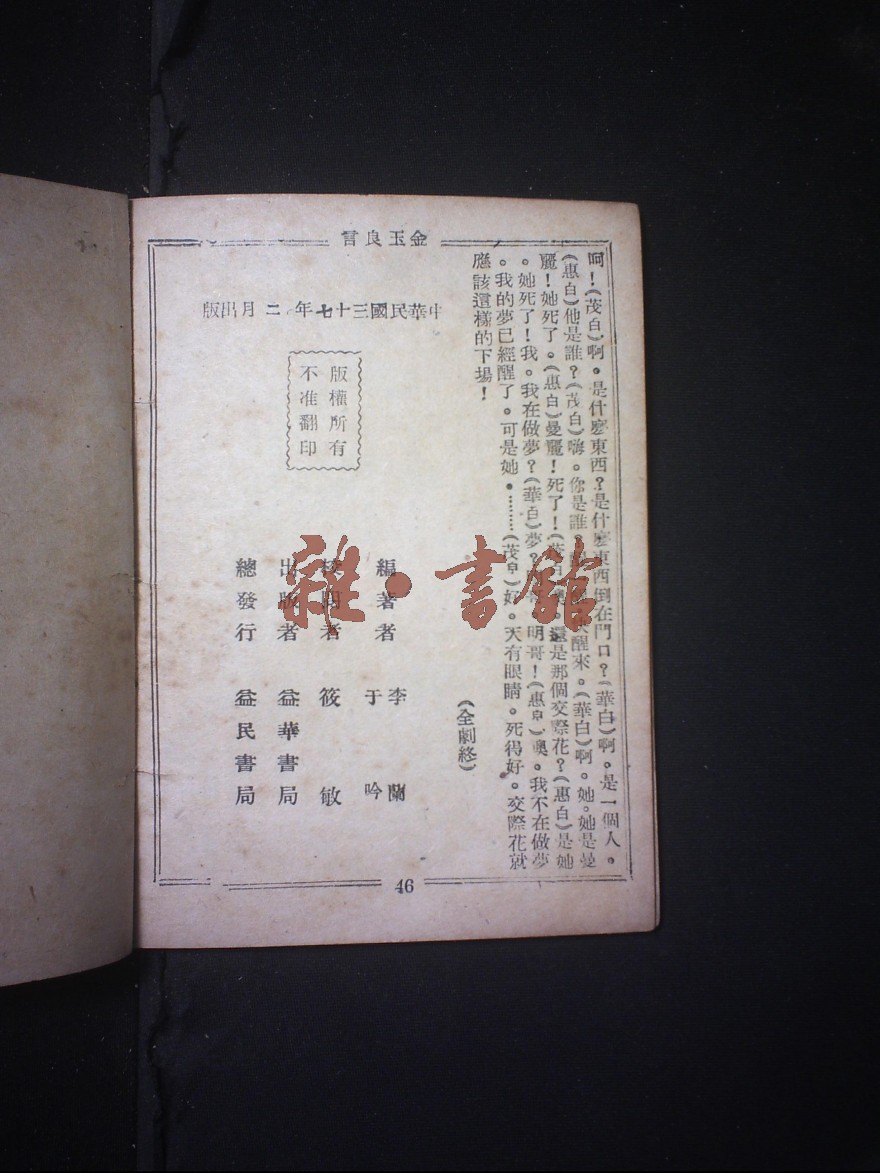 金玉良言
呵！（茂白）啊。是什麽東西？是什麽東西倒在門口？（華白）啊。是一個人。
（惠白）他是誰？（茂白）嗨。你是誰 醒來。（華白）啊。她。她是曼
麗！她死了。（惠白）曼麗！死了！ 還是那個交際花？（惠白）是她
。她死了！我。我在做夢？（華白）夢？ 明哥！（惠白）噢。我不在做夢
。我的夢已經醒了。可是她。………（茂白）好。天有眼睛。死得好。交際花就
應該這樣的下場！
（全劇終）
中華民國三十七年二月出版
版權所有
不准翻印
編著者 李蘭
于吟
校閱者 筱敏
出版者 益華書局
總發行 益民書局
46
雜·書館